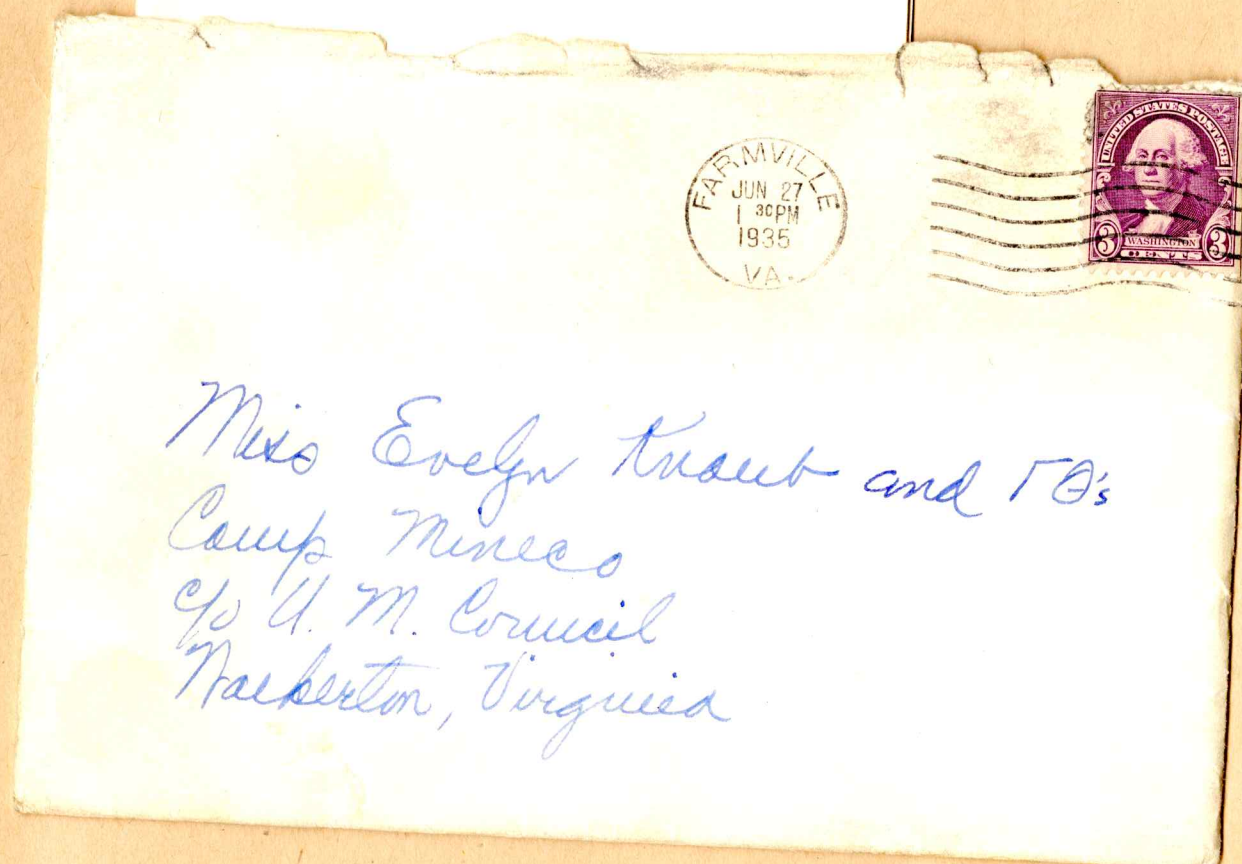 FARMVILLE
JUN 27
1 30PM
1935
VA.
UNITED STATES POSTAGE
3 WASHINGTON 3
CENTS
Miss Evelyn Knaub and ΓΘ's
Camp Mineco
c/o A. M. Council
Walkerton, Virginia